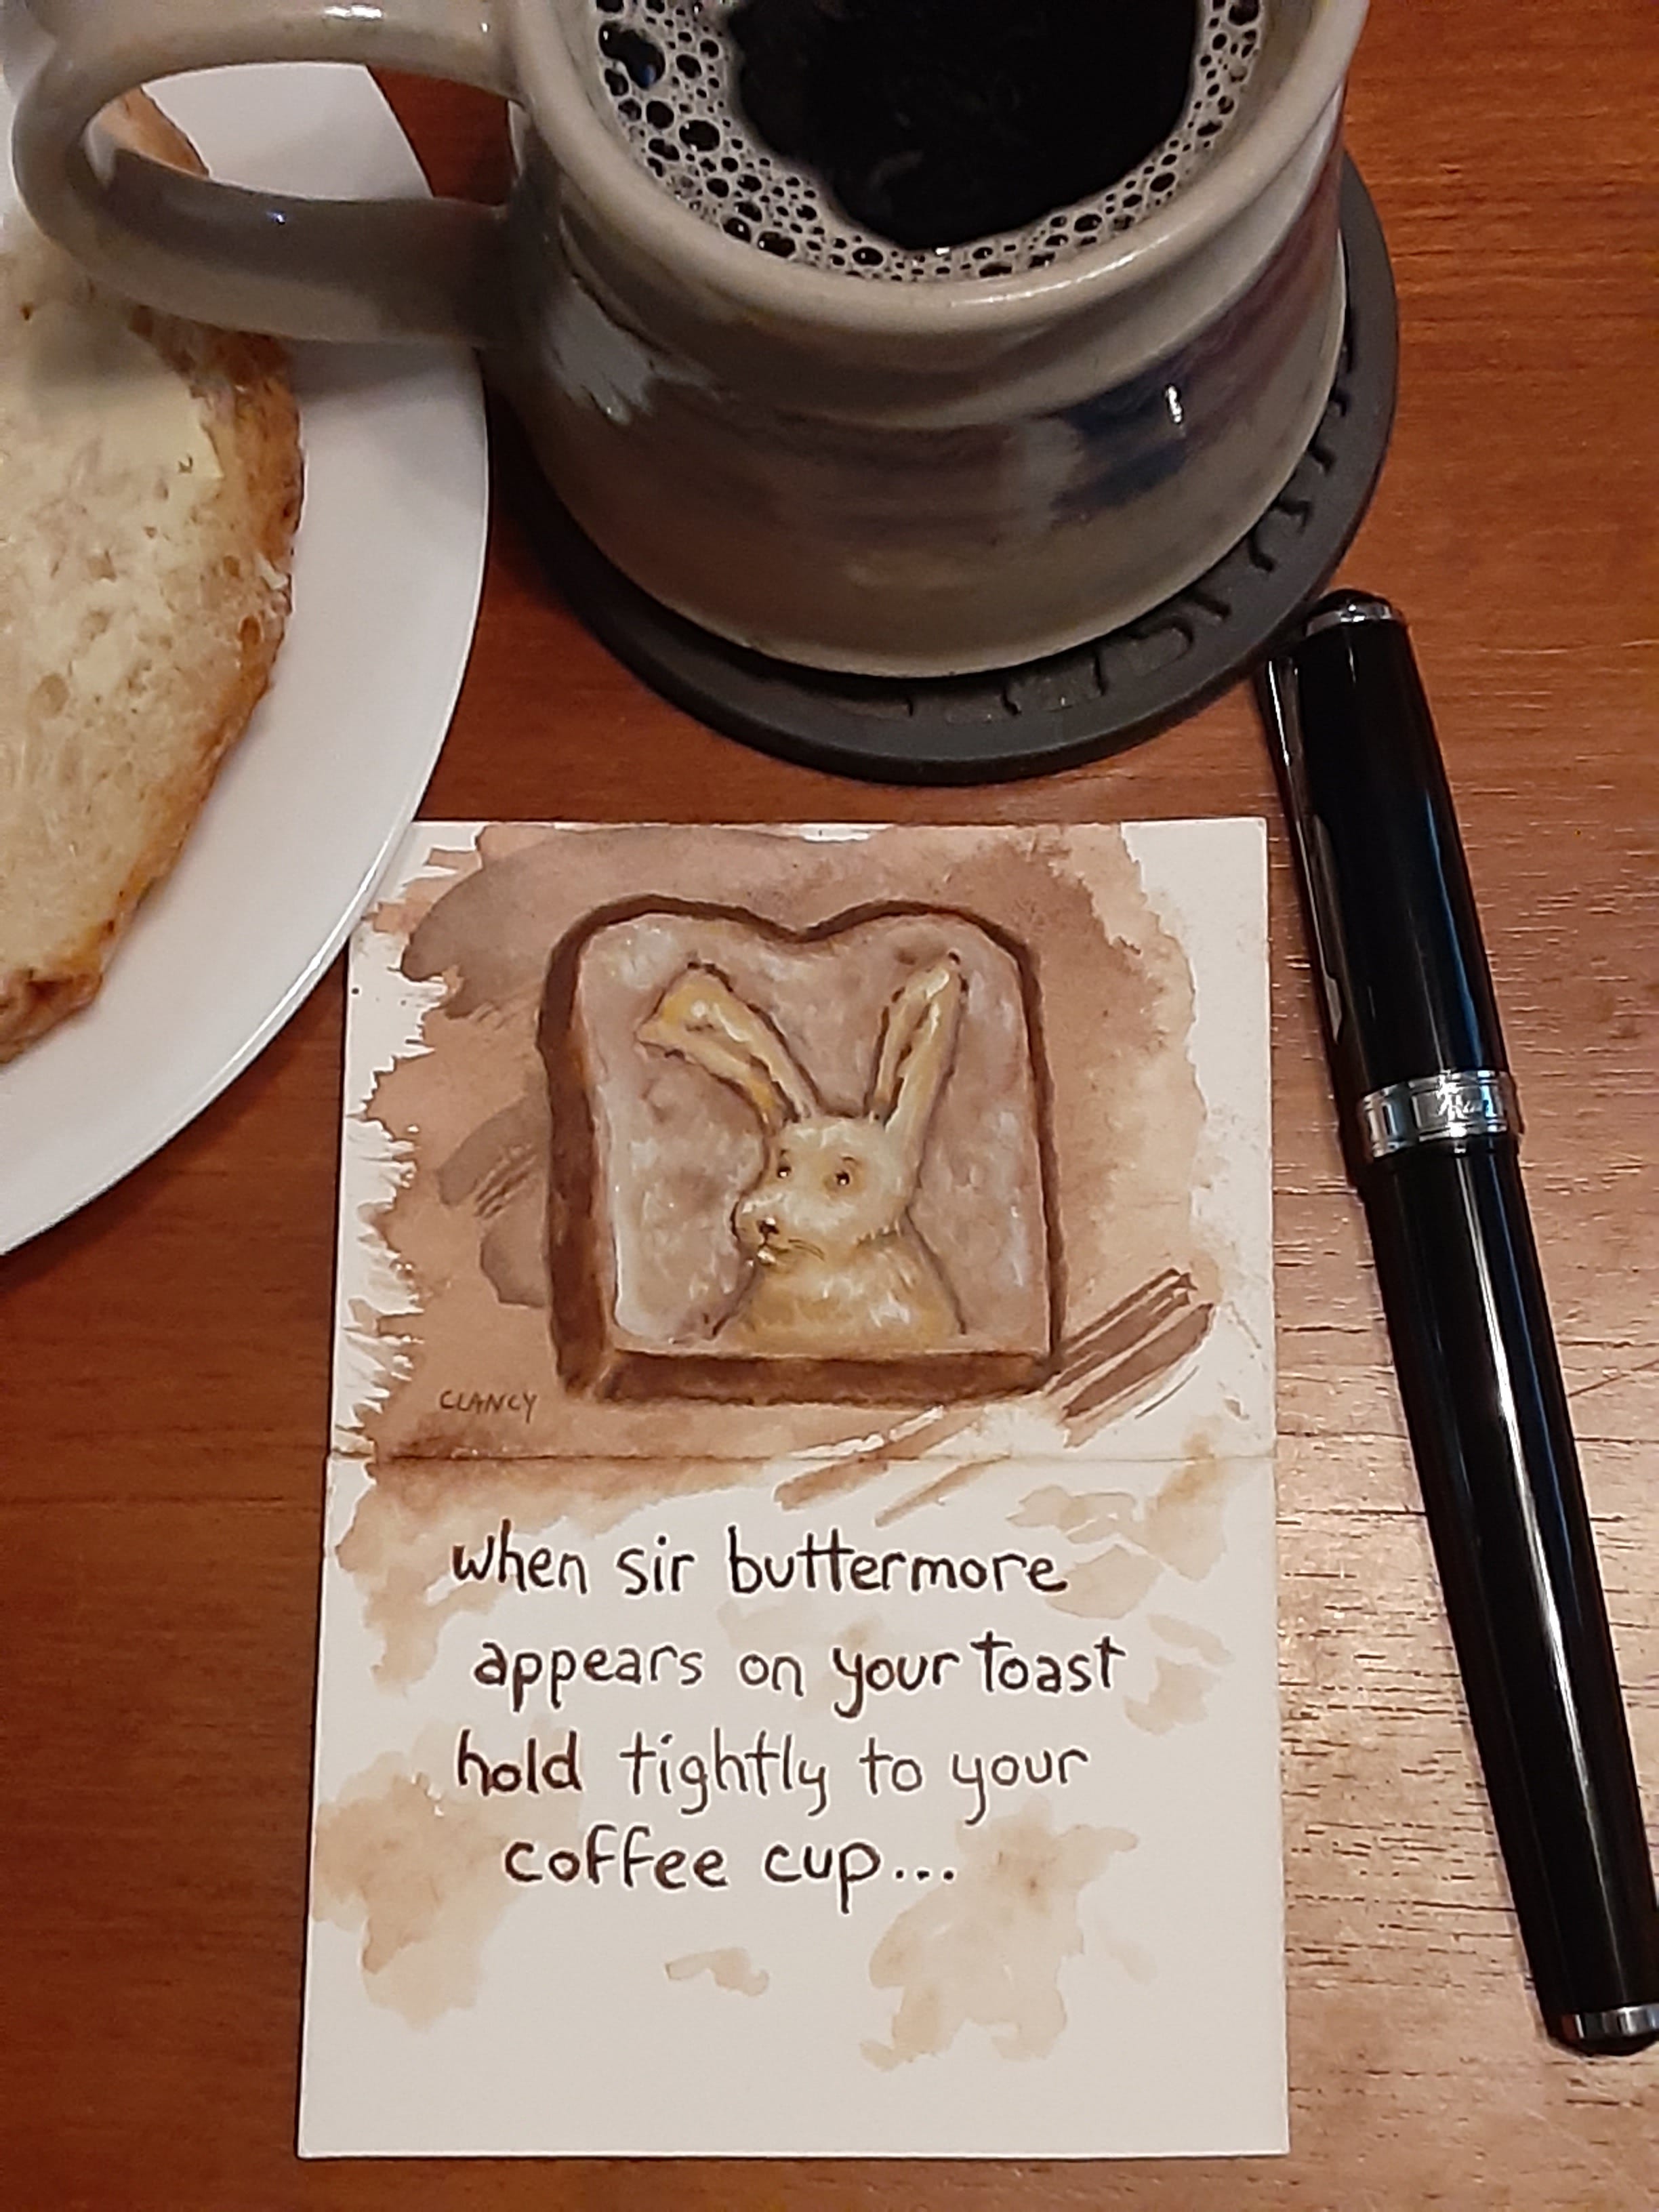 CLANCY
when sir buttermore
appears on your toast
hold tightly to your
coffee cup...